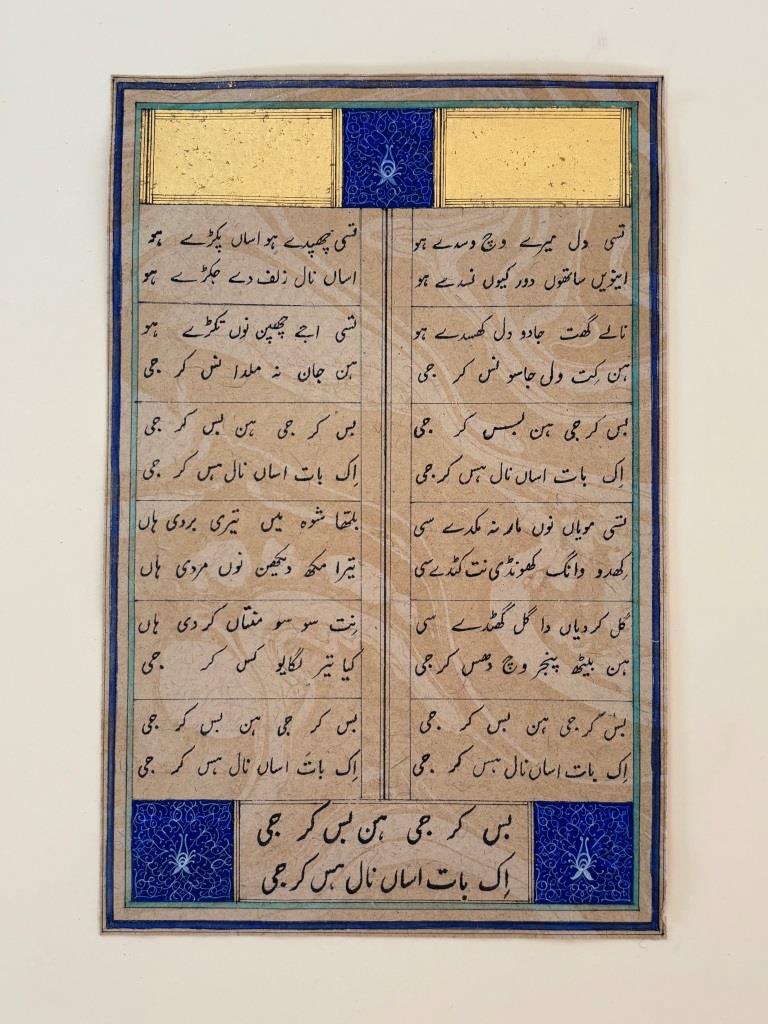 تسی دل میرے وچ وسدے ہو
اینویں ساتھوں دور کیوں نسدے ہو
نالے گھت جادو دل کھسدے ہو
ہن کِت ولی جاسو نس کر جی
بس کر جی ہن بس کر جی
اِک بات اساں نال ہس کر جی
تسی مویاں نوں مار نہ مکدے سی
کھدو وانگ کھونڈی نت کٹدے سی
گل کردیاں دا گل گھٹدے سی
ہن بیٹھ پنجر وچ دھس کر جی
بس کر جی ہن بس کر جی
اِک بات اساں نال ہس کر جی
تسی چھپدے ہو اساں پکڑے ہو
اساں نال زلف دے جکڑے ہو
تسی اجے چھپن نوں تکڑے ہو
ہن جان نہ ملدا نس کر جی
بس کر جی ہن بس کر جی
اِک بات اساں نال ہس کر جی
بلھا شوہ میں تیری بردی ہاں
تیرا مکھ دیکھن نوں مردی ہاں
نِت سو سو منتاں کردی ہاں
کیا تیر لگایو کس کر جی
بس کر جی ہن بس کر جی
اِک بات اساں نال ہس کر جی
بس کر جی ہن بس کر جی
اِک بات اساں نال ہس کر جی